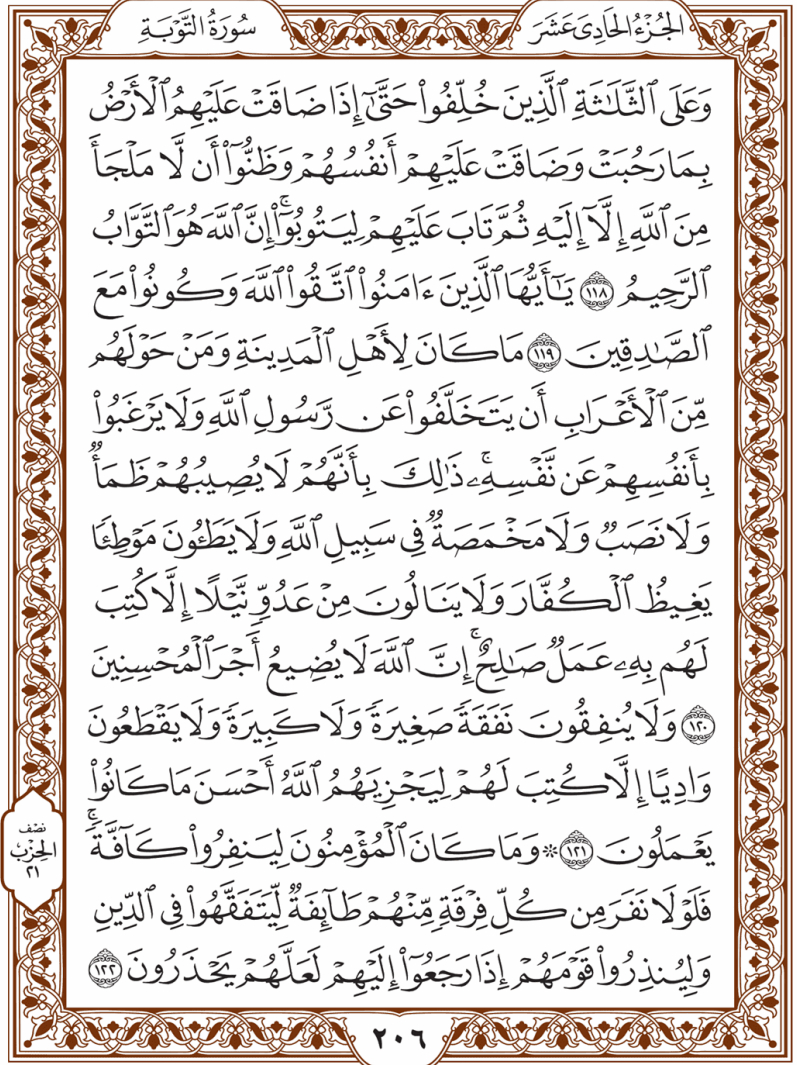 الجُزْءُ الحَادِى عَشَرَ
سُورَةُ التَّوْبَةِ
وَعَلَى ٱلثَّلَٰثَةِ ٱلَّذِينَ خُلِّفُوا۟ حَتَّىٰٓ إِذَا ضَاقَتْ عَلَيْهِمُ ٱلْأَرْضُ
بِمَا رَحُبَتْ وَضَاقَتْ عَلَيْهِمْ أَنفُسُهُمْ وَظَنُّوٓا۟ أَن لَّا مَلْجَأَ
مِنَ ٱللَّهِ إِلَّآ إِلَيْهِ ثُمَّ تَابَ عَلَيْهِمْ لِيَتُوبُوٓا۟ ۚ إِنَّ ٱللَّهَ هُوَ ٱلتَّوَّابُ
ٱلرَّحِيمُ ١١٨ يَٰٓأَيُّهَا ٱلَّذِينَ ءَامَنُوا۟ ٱتَّقُوا۟ ٱللَّهَ وَكُونُوا۟ مَعَ
ٱلصَّٰدِقِينَ ١١٩ مَا كَانَ لِأَهْلِ ٱلْمَدِينَةِ وَمَنْ حَوْلَهُم
مِّنَ ٱلْأَعْرَابِ أَن يَتَخَلَّفُوا۟ عَن رَّسُولِ ٱللَّهِ وَلَا يَرْغَبُوا۟
بِأَنفُسِهِمْ عَن نَّفْسِهِۦ ۚ ذَٰلِكَ بِأَنَّهُمْ لَا يُصِيبُهُمْ ظَمَأٌ
وَلَا نَصَبٌ وَلَا مَخْمَصَةٌ فِى سَبِيلِ ٱللَّهِ وَلَا يَطَـُٔونَ مَوْطِئًا
يَغِيظُ ٱلْكُفَّارَ وَلَا يَنَالُونَ مِنْ عَدُوٍّ نَّيْلًا إِلَّا كُتِبَ
لَهُم بِهِۦ عَمَلٌ صَٰلِحٌ ۚ إِنَّ ٱللَّهَ لَا يُضِيعُ أَجْرَ ٱلْمُحْسِنِينَ
١٢٠ وَلَا يُنفِقُونَ نَفَقَةً صَغِيرَةً وَلَا كَبِيرَةً وَلَا يَقْطَعُونَ
وَادِيًا إِلَّا كُتِبَ لَهُمْ لِيَجْزِيَهُمُ ٱللَّهُ أَحْسَنَ مَا كَانُوا۟
يَعْمَلُونَ ١٢١ ۞ وَمَا كَانَ ٱلْمُؤْمِنُونَ لِيَنفِرُوا۟ كَآفَّةً ۚ
فَلَوْلَا نَفَرَ مِن كُلِّ فِرْقَةٍ مِّنْهُمْ طَآئِفَةٌ لِّيَتَفَقَّهُوا۟ فِى ٱلدِّينِ
وَلِيُنذِرُوا۟ قَوْمَهُمْ إِذَا رَجَعُوٓا۟ إِلَيْهِمْ لَعَلَّهُمْ يَحْذَرُونَ ١٢٢
نصف
الحزب
٢١
٢٠٦